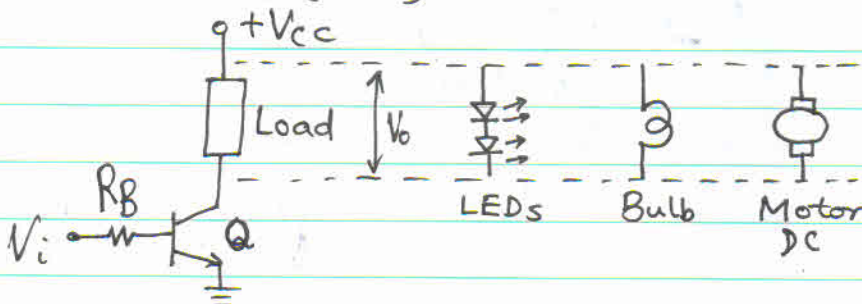 +Vcc
Load
Vo
RB
Vi
Q
LEDs
Bulb
Motor
DC